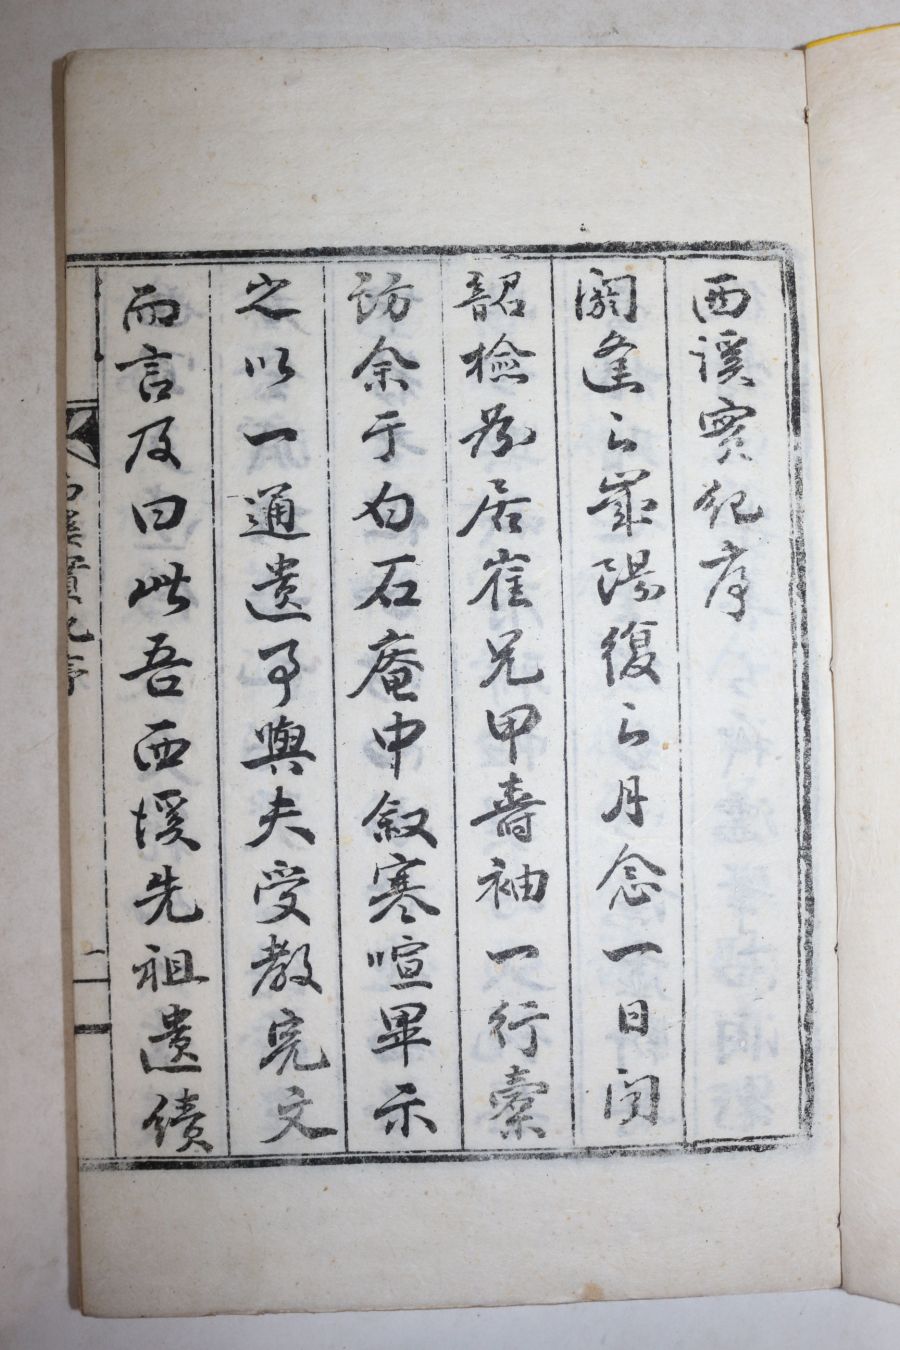 西溪實紀序
閼逢之歲陽復之月念一日聞
韶檢谷居崔兄甲壽袖一行橐
訪余于白石庵中敘寒喧畢示
之以一通遺事與夫受敎完文
而言及曰此吾西溪先祖遺績
西溪實紀序
一